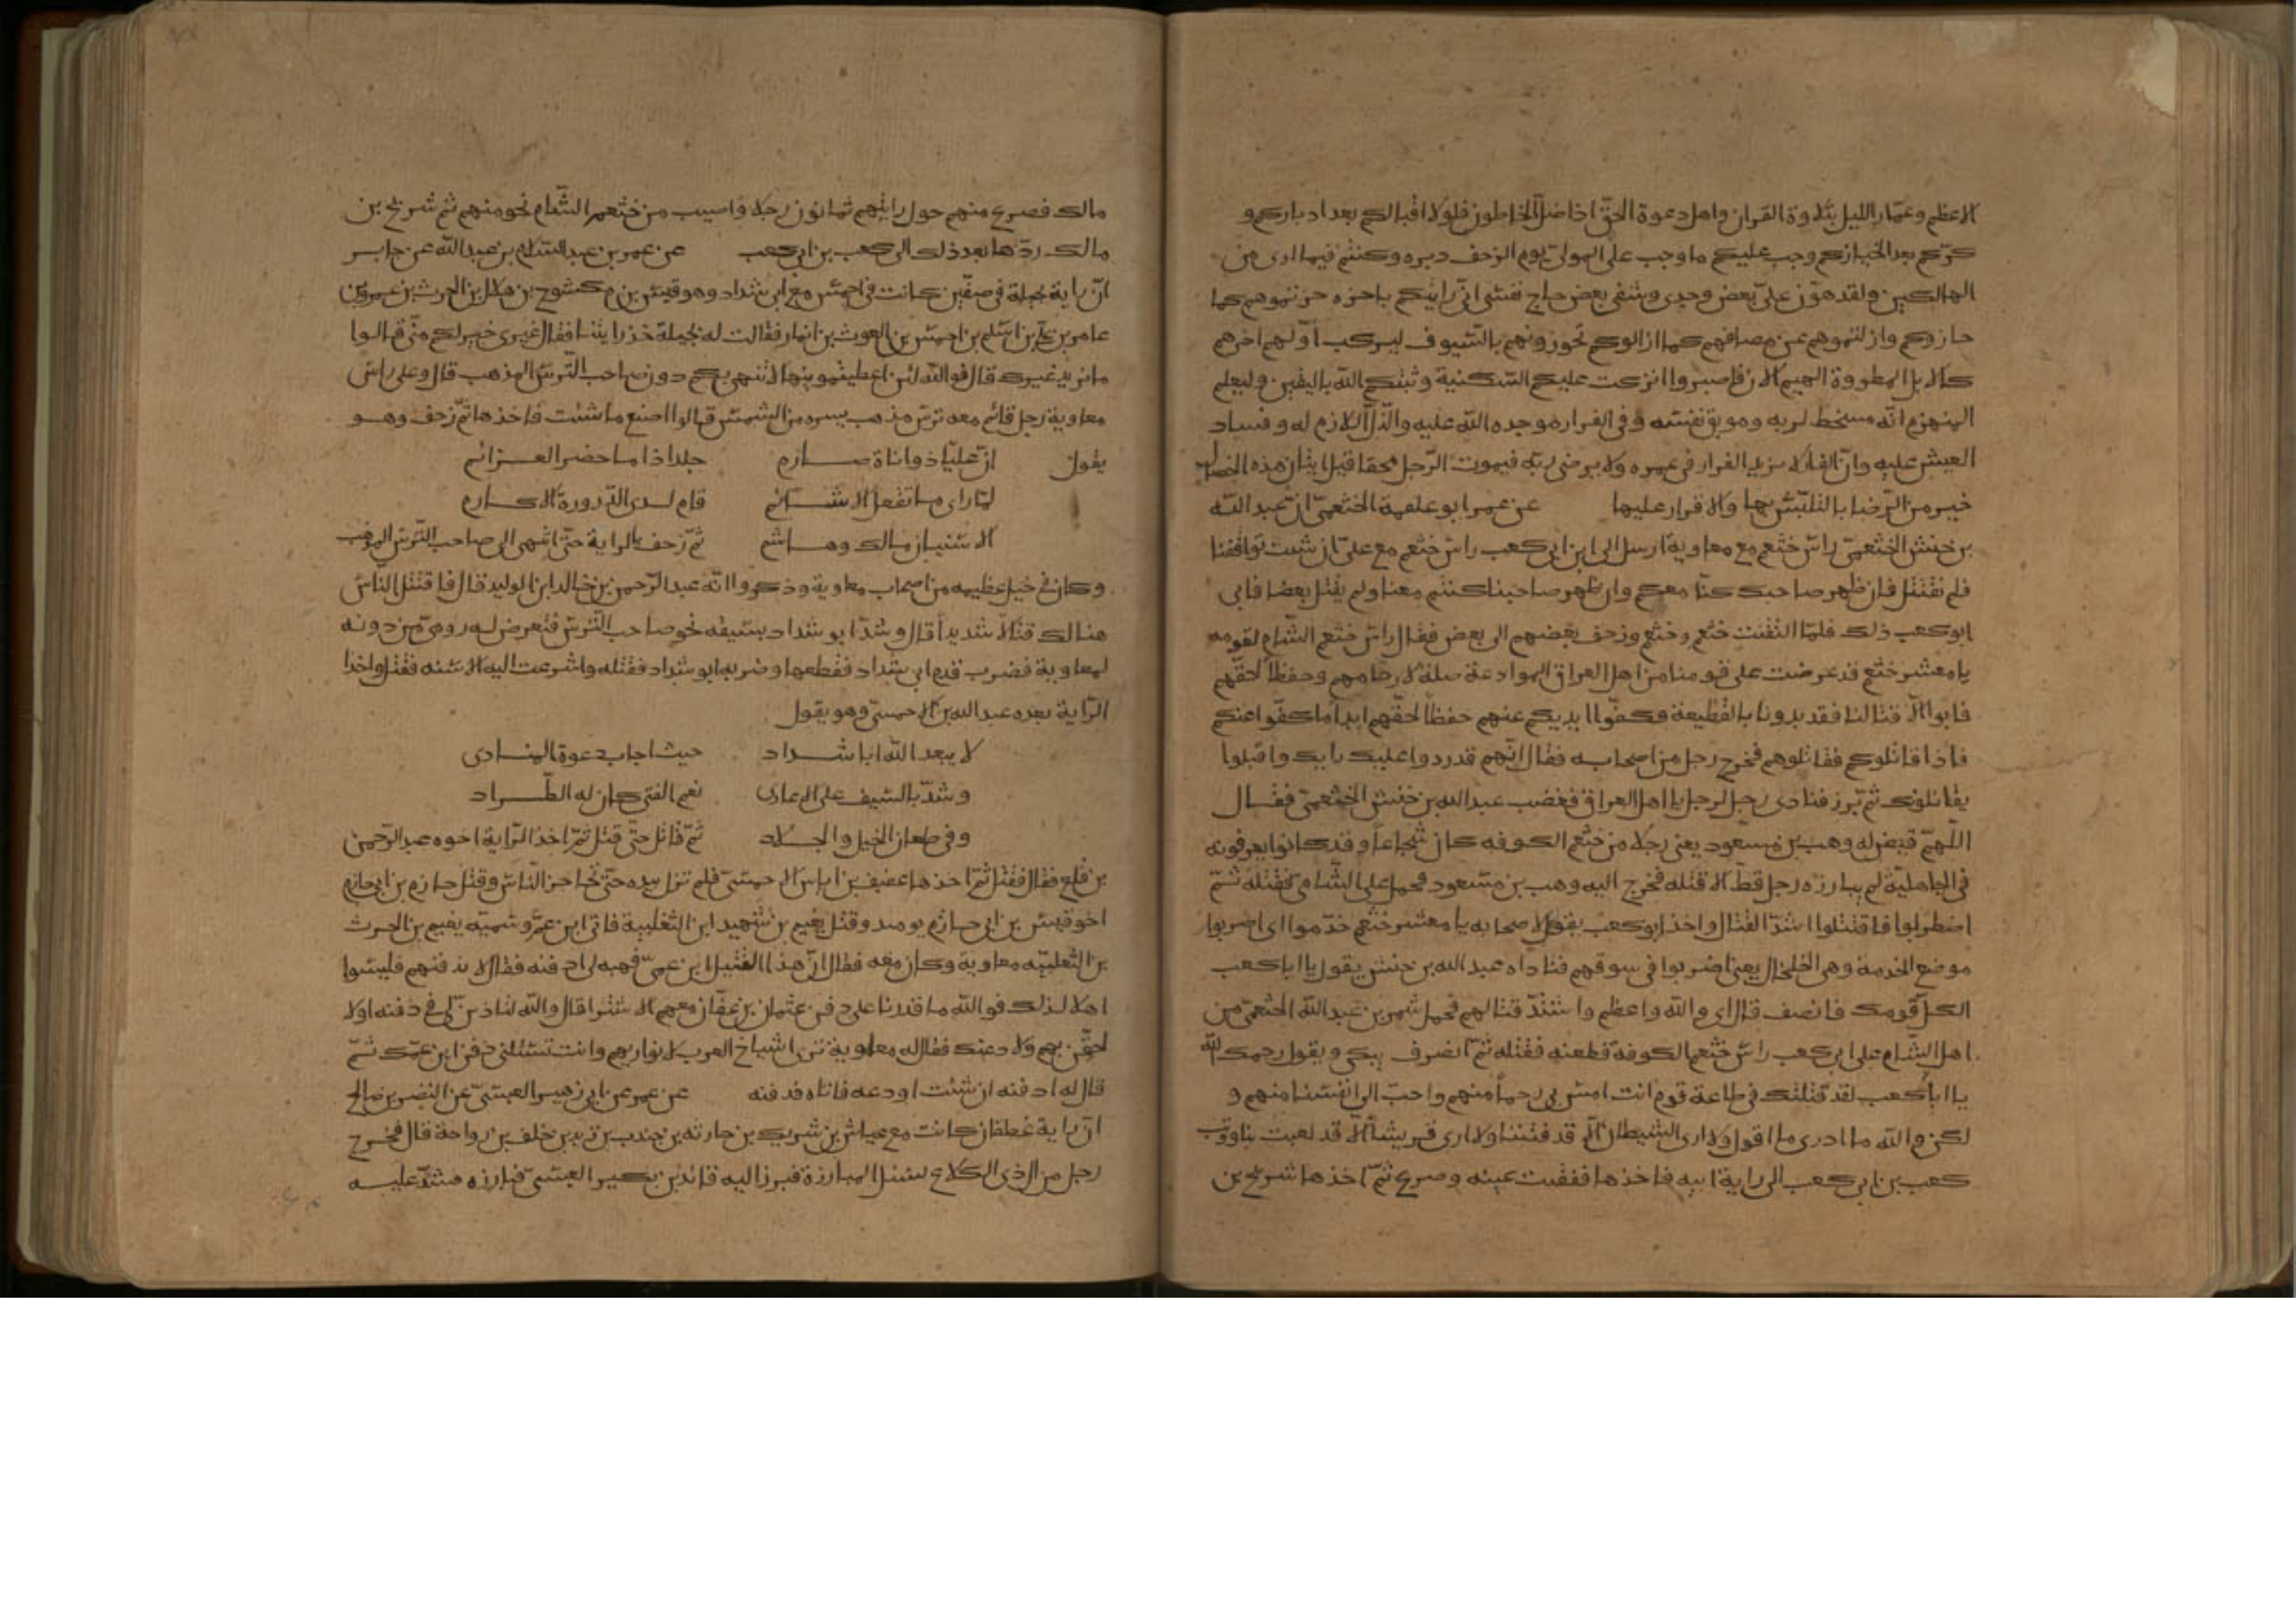 الاعظم وعمّار الليل بتلاوة القران واهل دعوة الحق اذا ضل الخاطون فلولا اقبالكم بعد ادباركم و
كرّكم بعد انحيازكم وجب عليكم ما وجب على المولى يوم الزحف دبره وكنتم فيما ارى من
الهالكين ولقد هوّن علىّ بعض وجدى وشفى بعض حاج نفسى انى رايتكم باخره حزتموهم كما
حازوكم وازلتموهم عن مصافهم كما ازالوكم تحوزونهم بالسيوف ليركب اولهم اخرهم
كالابل المطرودة الهيم الان فاصبروا انزلت عليكم السكينة وثبتكم الله باليقين وليعلم
المنهزم انّه مسخط لربه وموبق نفسه وفى الفرار موجده الله عليه والذل اللازم له وفساد
العيش عليه وانّ الفار لا يزيد الفرار فى عمره ولا يرضى ربه فيموت الرجل محقا قبل اتيان هذه الخصال
خير من الرضا بالتلبّس بها والاقرار عليها عن عمر ابو علقمة الخثعمى ان عبد الله
بن حنش الخثعمى راس خثعم مع معاوية ارسل الى ابن ابى كعب راس خثعم مع على ان شيت تواقفنا
فلم نقتتل فان ظهر صاحبك كنّا معكم وان ظهر صاحبنا كنتم معنا ولم يقتل بعضنا فابى
ابو كعب ذلك فلمّا التقت خثعم وخثعم وزحف بعضهم الى بعض فقال راس خثعم الشام لقومه
يا معشر خثعم قد عرضت على قومنا من اهل العراق الموادعة صلة لارحامهم وحفظا لحقهم
فابوا الّا قتالنا فقد بدونا بالقطيعة فكفّوا ايديكم عنهم حفظا لحقّهم ابدا ما كفّوا عنكم
فاذا قاتلوكم فقاتلوهم فخرج رجل من اصحابه فقال انّهم قد ردوا عليك رايك واقبلوا
يقاتلونك ثم برز فنادى رجل لرجل يا اهل العراق فغضب عبد الله بن حنش الخثعمى فقال
اللهمّ قيض له وهب بن مسعود يعنى رجلا من خثعم الكوفه كان شجاعا وقد كانوا يعرفونه
فى الجاهليّة لم يبارزه رجل قطّ الا قتله فخرج اليه وهب بن مسعود فحمل على الشامى فقتله ثمّ
اضطربوا فاقتتلوا اشدّ القتال واخذ ابو كعب يقول لاصحابه يا معشر خثعم خدّموا اى اضربوا
موضع الخدمة وهى الخلخال يعنى اضربوا فى سوقهم فناداه عبد الله بن حنش يقول يا ابا كعب
الكل قومك فانصف قال اى والله واعظم واشتدّ قتالهم فحمل شمر بن عبد الله الخثعمى من
اهل الشام على ابى كعب راس خثعم الكوفة فطعنه فقتله ثمّ انصرف يبكى ويقول رحمك الله
يا ابا كعب لقد قتلتك فى طاعة قوم انت امسّ بى رحما منهم واحبّ الى نفسا منهم و
لكن والله ما ادرى ما اقول ولا ارى الشيطان الّا قد فتننا ولا ارى قريشا الّا قد لعبت بنا ووثب
كعب بن ابى كعب الى راية ابيه فاخذها ففقئت عينه وصرع ثمّ اخذها شريح بن
مالك فصرع منهم حول رايتهم ثمانون رجلا واصيب من خثعم الشام نحو منهم ثم شريح بن
مالك ردّها بعد ذلك الى كعب بن ابى كعب عن عمر بن عبد السلام بن عبد الله عن جابر
انّ راية بجيلة فى صفّين كانت فى احمس مع ابى شداد وهو قيس بن مكشوح بن هلال بن الحرث بن عمرو بن
عامر بن على بن اسلم بن احمس بن الغوث بن انمار فقالت له بجيلة خذ رايتنا فقال غيرى خير لكم منّى قالوا
ما نريد غيرك قال فوالله لئن اعطيتمونيها لا انتهى بكم دون صاحب الترس المذهب قال وعلى راس
معاوية رجل قائم معه ترس مذهب يستره من الشمس قالوا اصنع ما شئت فاخذها ثمّ زحف وهو
يقول انّ عليّا ذو اناة صارم جلد اذا ما حضر العزائم
لمّا راى ما تفعل الاشائم قام لدى الذروة الاكارم
الاشيبان مالك وهاشم ثم زحف بالراية حتّى انتهى الى صاحب الترس المذهب
وكان فى خيل عظيمه من اصحاب معاوية وذكروا انّه عبد الرحمن بن خالد ابن الوليد قال فاقتتل الناس
هنالك قتالا شديدا قال وشدّ ابو شداد بسيفه نحو صاحب الترس فتعرض له رومىّ من دونه
لمعاوية فضرب قدم ابى شداد فقطعها وضربه ابو شداد فقتله واشرعت اليه الاسنه فقتل واخذ
الرّاية بعده عبد الله بن الاحمسىّ وهو يقول
لا يبعد الله ابا شداد حيث اجاب دعوة المنادى
وشدّ بالسّيف على الاعادى نعم الفتى كان له الطّراد
وفى طعان الخيل والجلاد ثمّ قاتل حتّى قتل ثمّ اخذ الرّاية اخوه عبد الرّحمن
بن قلع فقال فقتل ثمّ اخذها عفيف بن اياس الاحمسىّ فلم تزل بيده حتّى تحاجز النّاس وقتل حازم بن ابى حازم
اخو قيس بن ابى حازم يومىد وقتل نعيم بن شهيد ابن الثغلبية فاتى ابن عمّه وسميّه نعيم بن الحرث
بن الثعلبيّه معاوية وكان معه فقال انّ هذا القتيل ابن عمىّ فهبه لى ادفنه فقال لا تدفنهم فليسوا
اهلا لذلك فوالله ما قدرنا على دفن عثمان بن عفّان معهم الا سترا قال والله لتاذننّ لى فى دفنه اولا
لحقنّ بهم ولا دعنك فقال له معاوية ترى اشياخ العرب لا نواريهم وانت تسئلنى دفن ابن عمّك ثمّ
قال له ادفنه ان شئت او دعه فاتاه فدفنه عن عمر عن ابى زهير العبسىّ عن النضر بن صالح
انّ راية غطفان كانت مع عياش بن شريك بن حارثه بن جندب بن زيد بن خلف بن رواحة قال فخرج
رجل من ال ذى الكلاع يسئل المبارزة فبرز اليه قائد بن بكير العبسىّ فبارزه فشدّ عليه